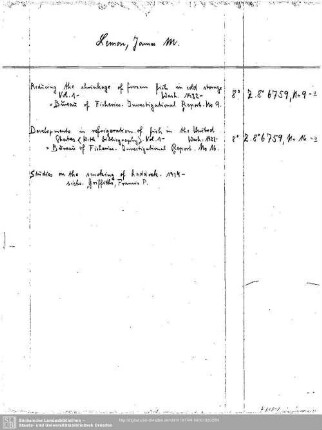 Lemon, James M.
Reducing the shrinkage of frozen fish in cold storage
Vol. 1- Wash. 1932-
= Bureau of Fisheries. Investigational Report. No 9. 8° Z. 8° 6759, No 9-
Developments in refrigeration of fish in the United
States (With bibliography) Vol. 1- Wash. 1932-
= Bureau of Fisheries. Investigational Report. No 16. 8° Z. 8° 6759, No 16-
Studies on the smoking of haddock. 1934-
siehe Griffiths, Francis P.
Sächsische Landesbibliothek -
Staats- und Universitätsbibliothek Dresden